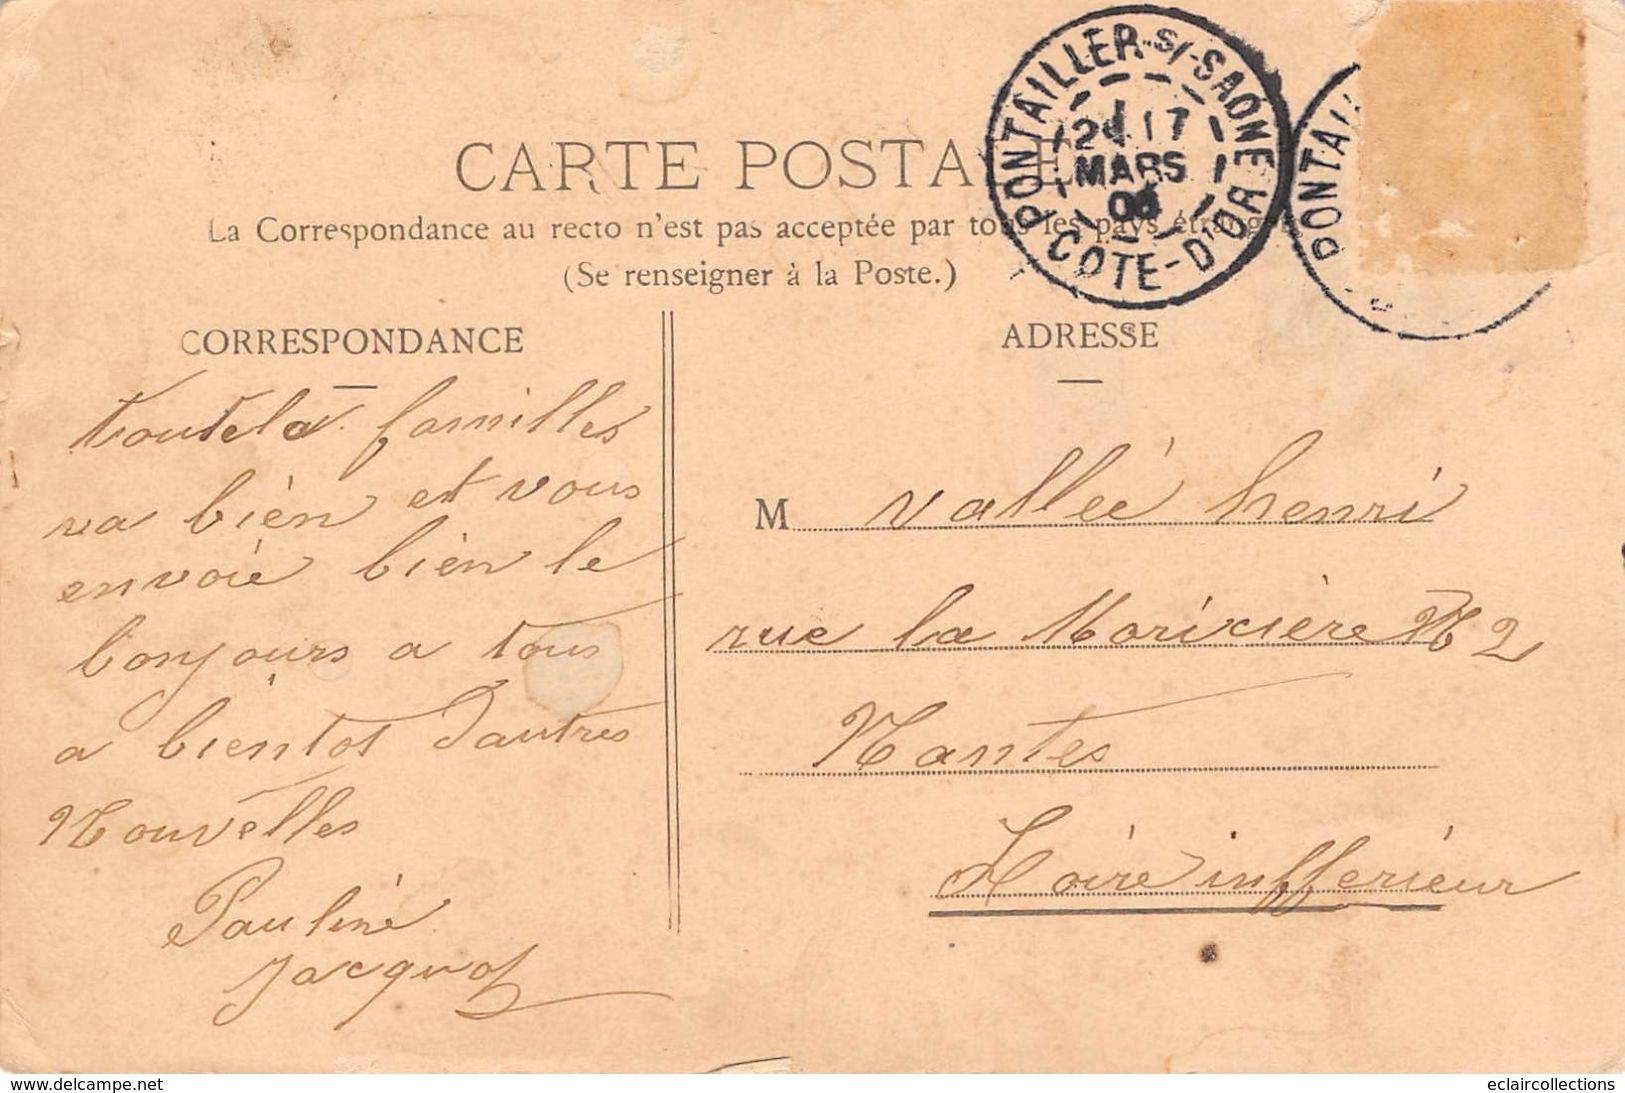 CARTE POSTALE
La Correspondance au recto n'est pas acceptée par tous les pays étrangers
(Se renseigner à la Poste.)
PONTAILLER-S/-SAONE
17
MARS
COTE-D'OR
PONTAI
CORRESPONDANCE
toutela familles
va bien et vous
envoie bien le
bonjours a tous
a bientot d'autres
Nouvelles
Pauline
Jacquot
ADRESSE
M vallée henri
rue la Moricière N 2
Nantes
Loire infferieur
www.delcampe.net
eclaircollections